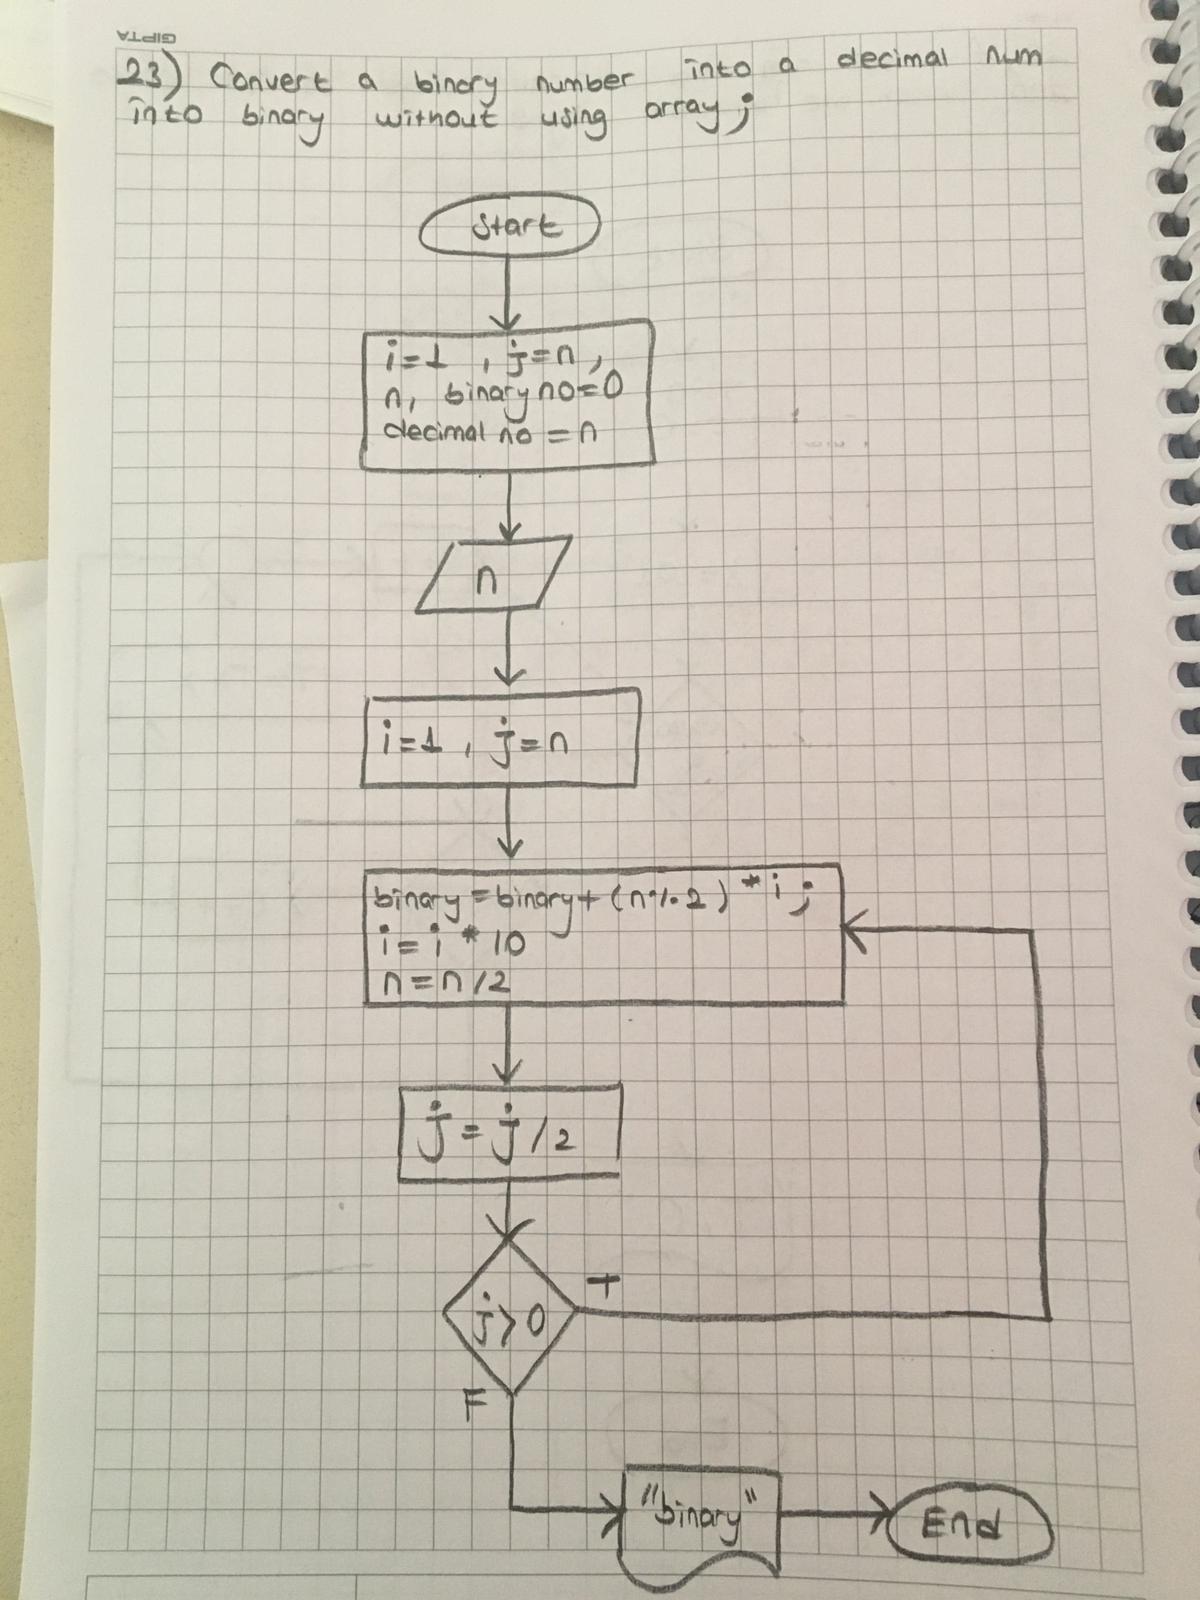 GIPTA
23) Convert a binary number into a decimal num
into binary without using array;
Start
i=1 , j=n,
n, binary no=0
decimal no = n
n
i=1 , j=n
binary=binary+(n%2)*i;
i=i*10
n=n/2
j=j/2
j>0
T
F
"binary"
End